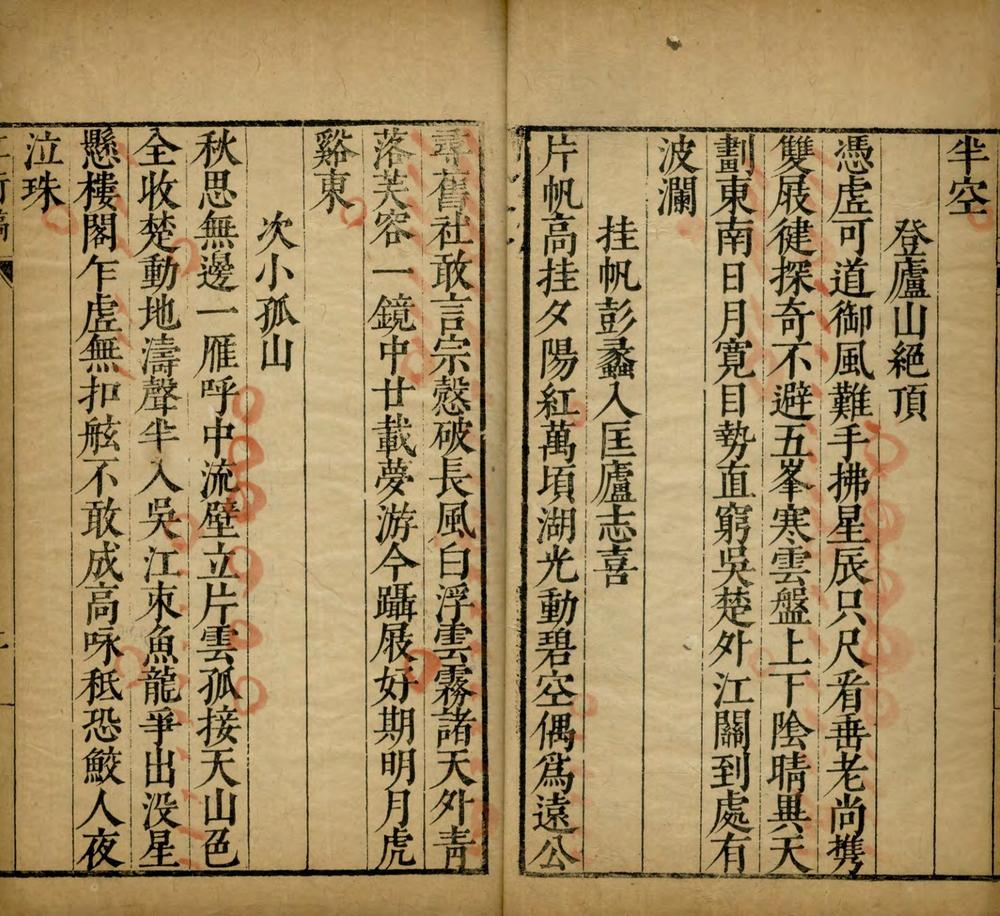 半空
登廬山絕頂
憑虛可道御風難手拂星辰只尺看垂老尚携
雙屐徤探奇不避五峯寒雲盤上下陰晴異天
劃東南日月寬目勢直窮吳楚外江關到處有
波瀾
挂帆彭蠡入匡廬志喜
片帆高挂夕陽紅萬頃湖光動碧空偶爲遠公
尋舊社敢言宗慤破長風白浮雲霧諸天外青
落芙容一鏡中廿載夢游今躡屐好期明月虎
谿東
次小孤山
秋思無邊一雁呼中流壁立片雲孤接天山色
全收楚動地濤聲半入吳江束魚龍爭出没星
懸樓閣乍虛無扣舷不敢成高咏秖恐鮫人夜
泣珠